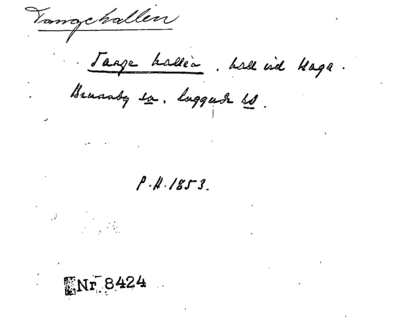 Tangehallen
Tange hallen, hall vid Haga.
Brunnby sn, Luggude hd.
P.H. 1853.
Nr 8424